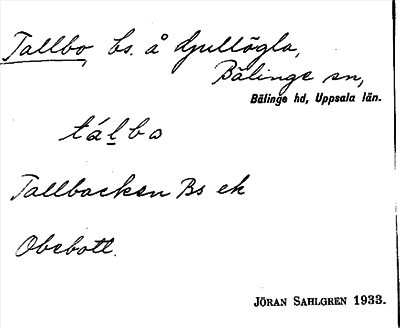 Tallbo, bs. å Djullögla,
Bälinge sn,
Bälinge hd, Uppsala län.
tálbo
Tallbacken Bs ek
Obebott.
JÖRAN SAHLGREN 1933.